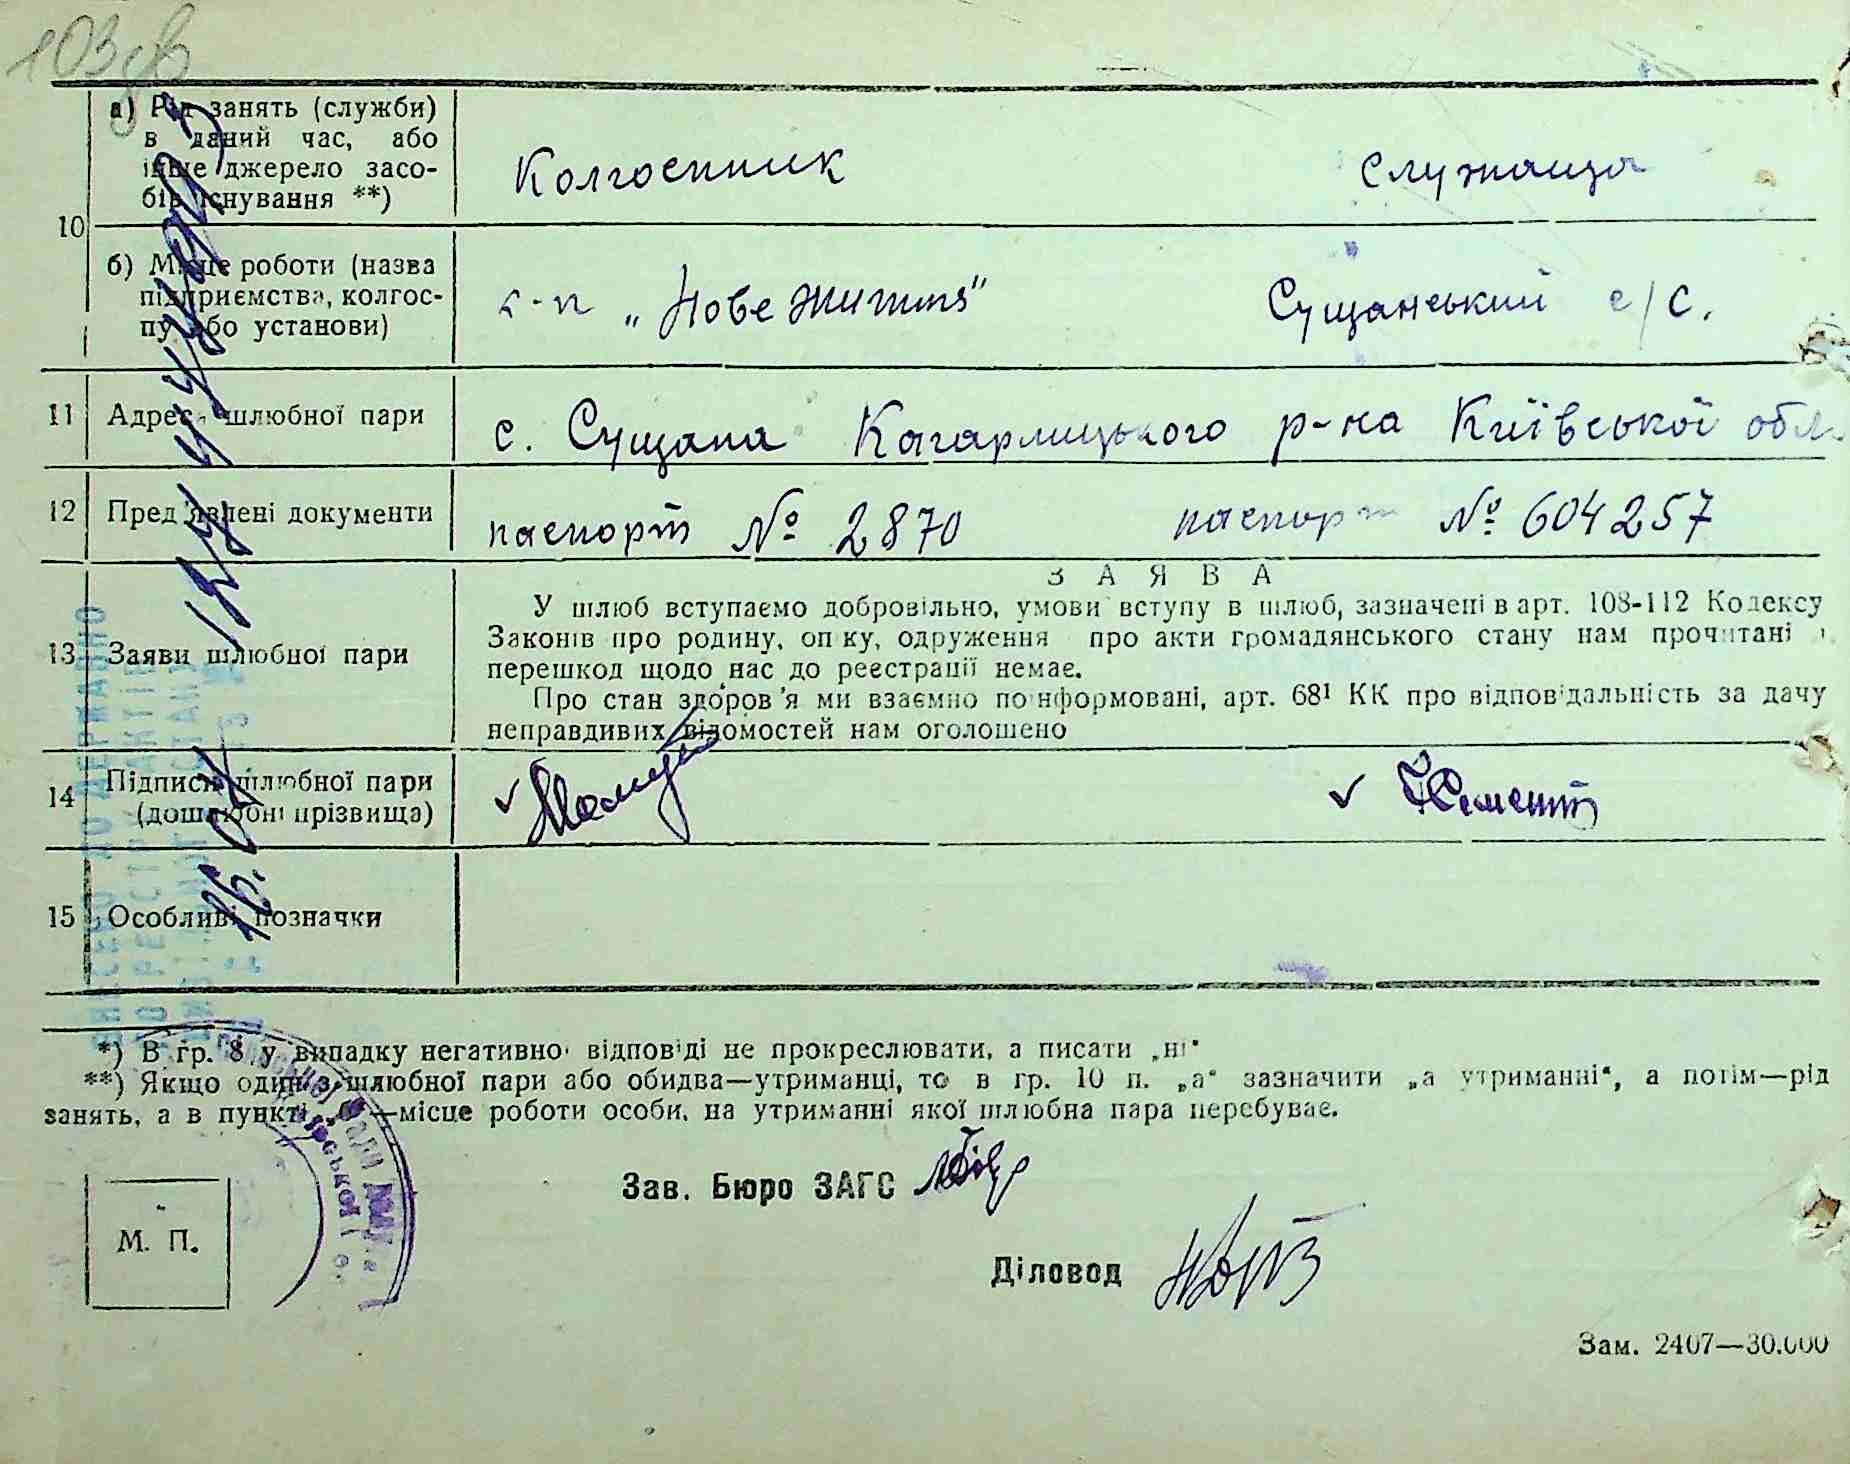 103 зв
10
а) Рід занять (служби)
в даний час, або
інше джерело засо-
бів існування **)
Колгоспник
служаща
б) Місце роботи (назва
підприємства, колгос-
пу або установи)
к-п „Нове життя"
Сущанський с/с.
11 Адреса шлюбної пари
с. Сущана Кагарлицького р-на Київської обл.
12 Пред'явлені документи
паспорт № 2870
паспорт № 604257
ЗАЯВА
13 Заяви шлюбної пари
У шлюб вступаємо добровільно, умови вступу в шлюб, зазначені в арт. 108-112 Кодексу
Законів про родину, опіку, одруження про акти громадянського стану нам прочитані і
перешкод щодо нас до реєстрації немає.
Про стан здоров'я ми взаємно поінформовані, арт. 68¹ КК про відповідальність за дачу
неправдивих відомостей нам оголошено
14 Підписи шлюбної пари
(дошлюбні прізвища)
15 Особливі позначки
*) В гр. 8 у випадку негативної відповіді не прокреслювати, а писати „ні"
**) Якщо один з шлюбної пари або обидва—утриманці, то в гр. 10 п. „а" зазначити „а утриманні", а потім—рід
занять, а в пункті „б"—місце роботи особи, на утриманні якої шлюбна пара перебуває.
Зав. Бюро ЗАГС
М. П.
Діловод
Зам. 2407—30.000